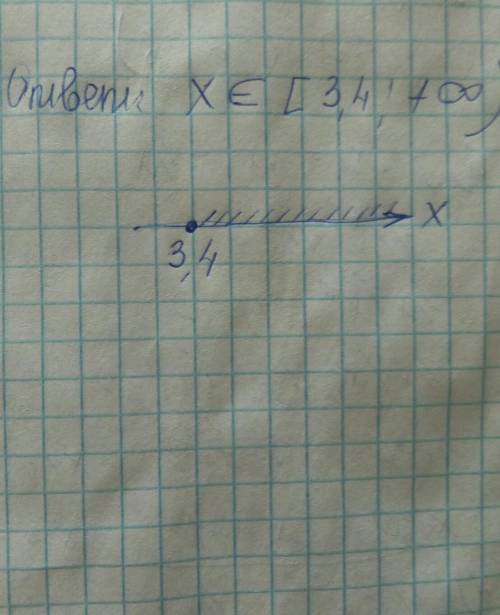 Ответ: x ∈ [3,4; +∞)
x
3,4